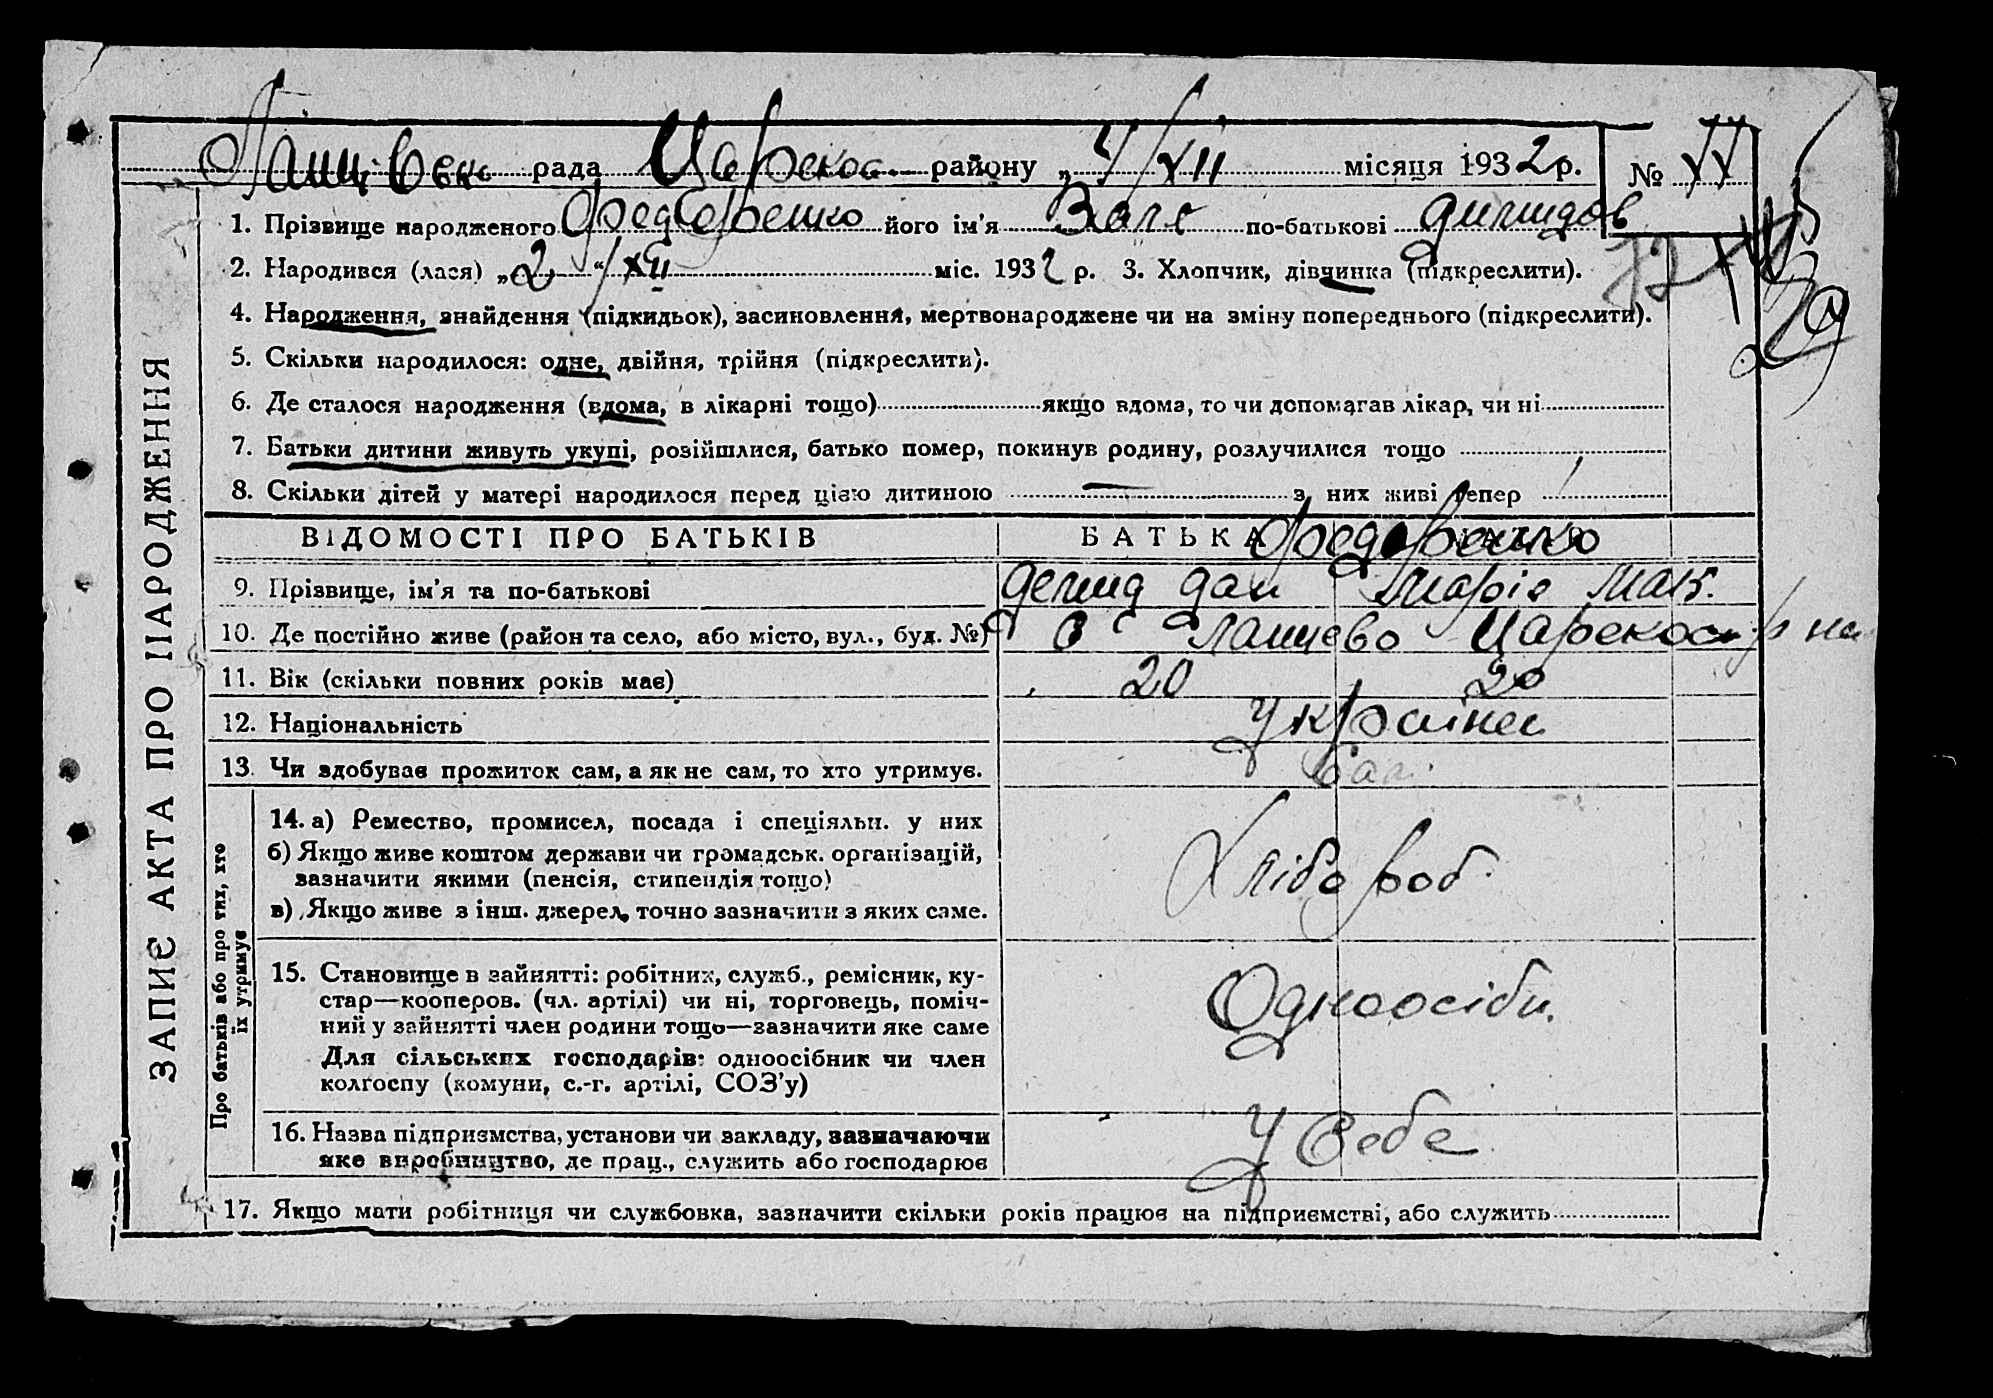 рада района „4/XII місяця 1932 р. №
1. Прізвище народженого Федоренко його ім'я Валя по-батькові
2. Народився (лася) „2“ / XII міс. 1932 р. 3. Хлопчик, дівчинка (підкреслити).
4. Народження, знайдення (підкидьок), засиновлення, мертвонароджене чи на зміну попереднього (підкреслити).
5. Скільки народилося: одне, двійня, трійня (підкреслити).
6. Де сталося народження (вдома, в лікарні тощо) якщо вдома, то чи допомагав лікар, чи ні
7. Батьки дитини живуть укупі, розійшлися, батько помер, покинув родину, розлучилися тощо
8. Скільки дітей у матері народилося перед цією дитиною — з них живі тепер
ВІДОМОСТІ ПРО БАТЬКІВ БАТЬКА Федоренко
9. Прізвище, ім'я та по-батькові Демид Дан Марія Мак.
10. Де постійно живе (район та село, або місто, вул., буд. №) с
11. Вік (скільки повних років має) 20 20
12. Національність Українці
13. Чи здобуває прожиток сам, а як не сам, то хто утримує. Сам.
14. а) Ремество, промисел, посада і спеціяльн. у них
б) Якщо живе коштом держави чи громадськ. організацій,
зазначити якими (пенсія, стипендія тощо)
в) Якщо живе з інш. джерел, точно зазначити з яких саме.
Хлібороб.
15. Становище в зайнятті: робітник, служб., ремісник, ку-
стар—кооперов. (чл. артілі) чи ні, торговець, поміч-
ний у зайнятті член родини тощо—зазначити яке саме
Для сільських господарів: одноосібник чи член
колгоспу (комуни, с.-г. артілі, СОЗ'у)
Одноосібн.
16. Назва підприємства, установи чи закладу, зазначаючи
яке виробництво, де прац., служить або господарює
У Себе
17. Якщо мати робітниця чи службовка, зазначити скільки років працює на підприємстві, або служить
ЗАПИС АКТА ПРО НАРОДЖЕННЯ
Про батьків або про тих, хто
їх утримує